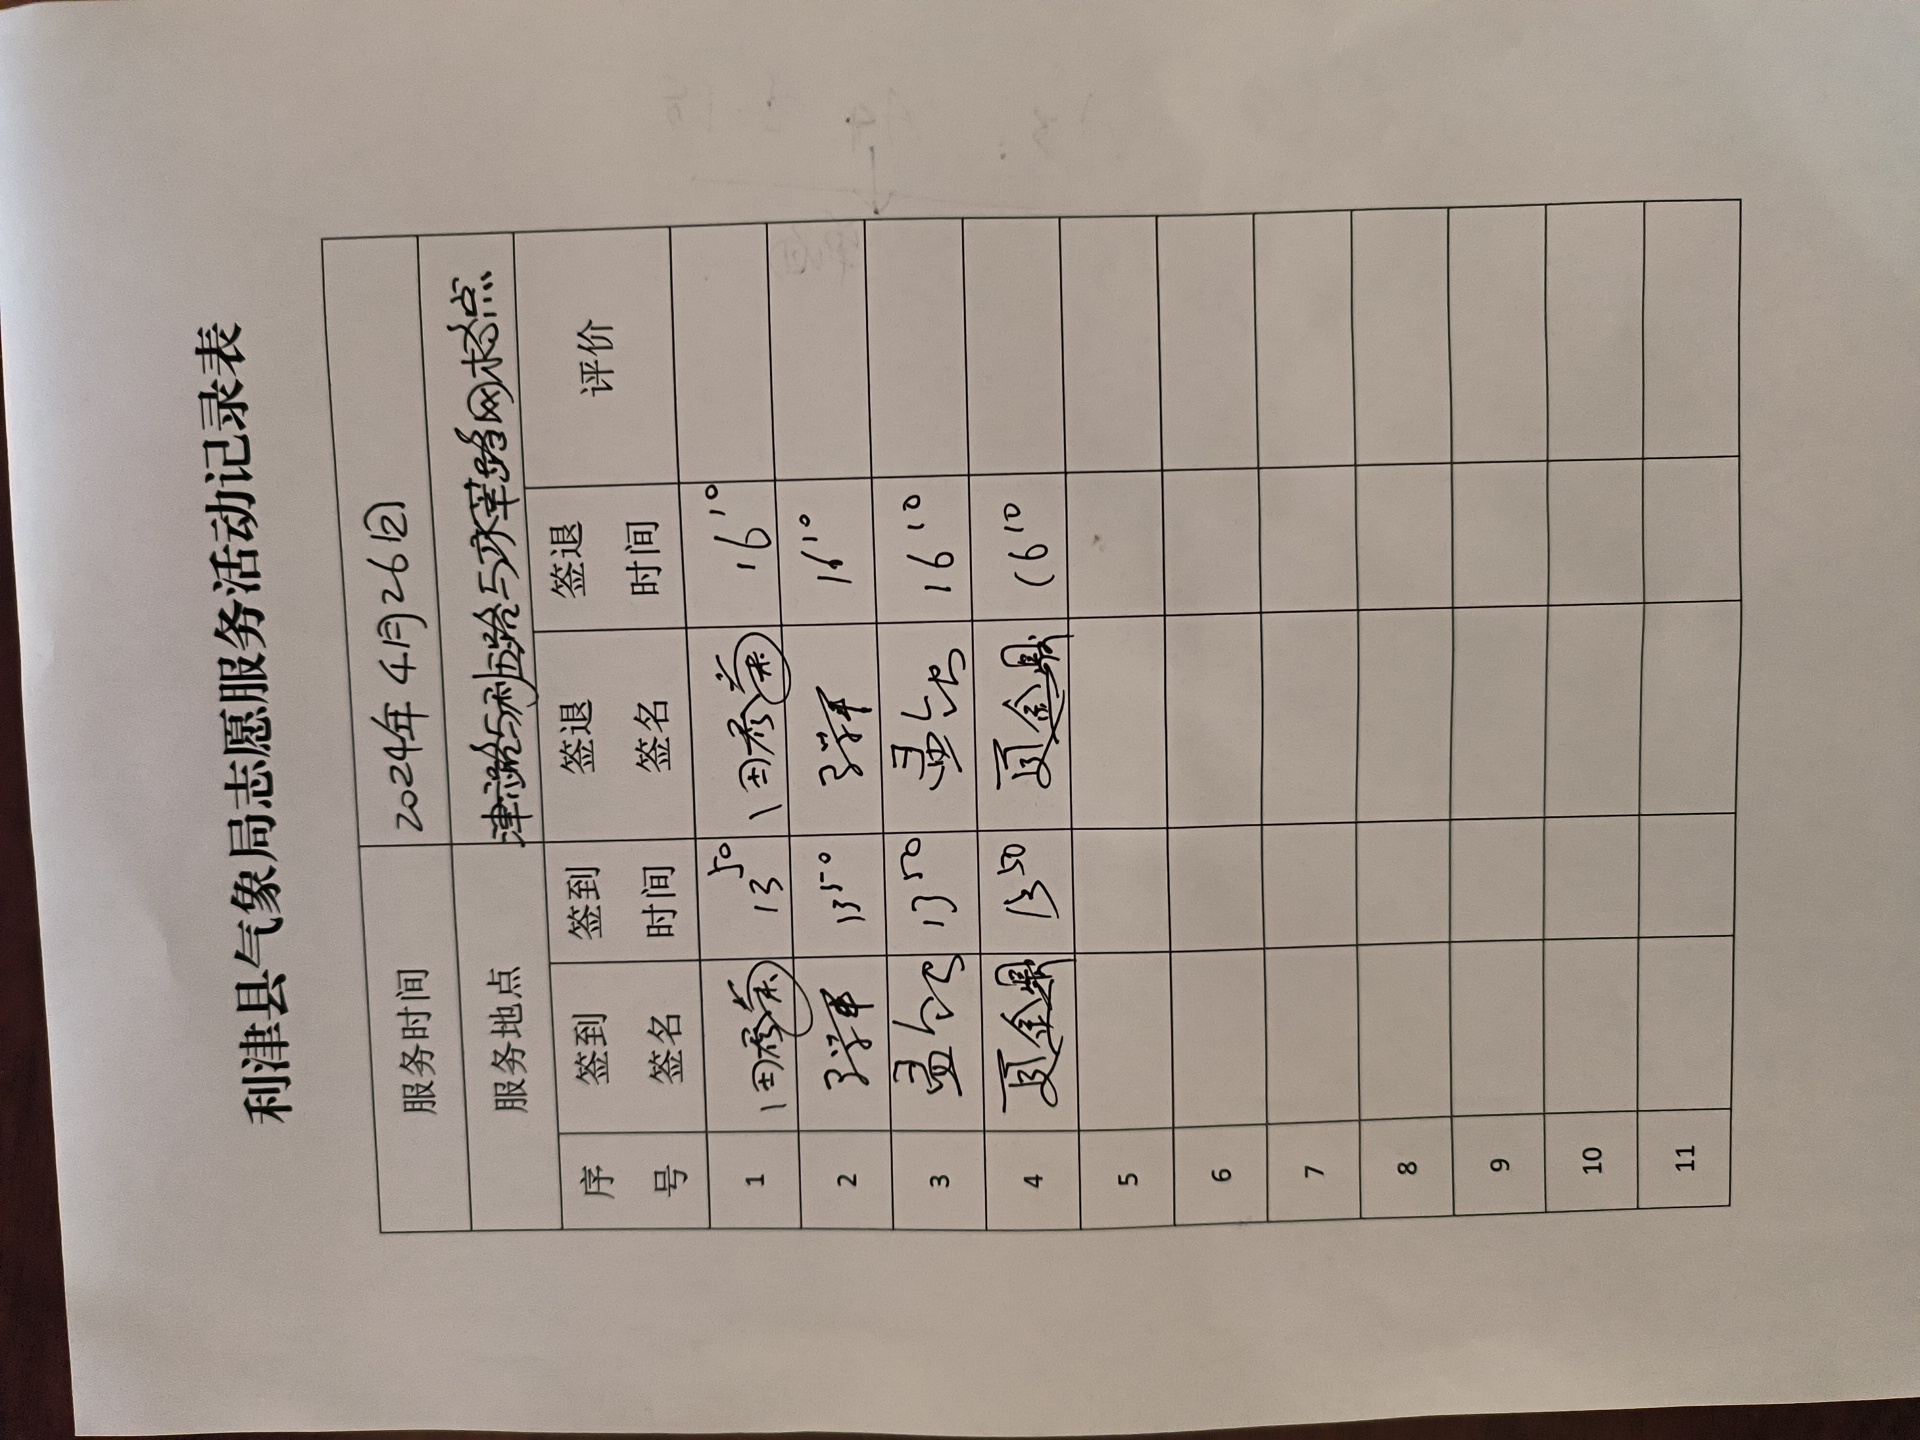 利津县气象局志愿服务活动记录表
服务时间 2024年4月26日
服务地点 津二路与利五路与永莘路网格点
序号 签到签名 签到时间 签退签名 签退时间 评价
1 13 50 16 10
2 13 50 16 10
3 13 50 16 10
4 夏金鼎 13 50 夏金鼎 16 10
5
6
7
8
9
10
11